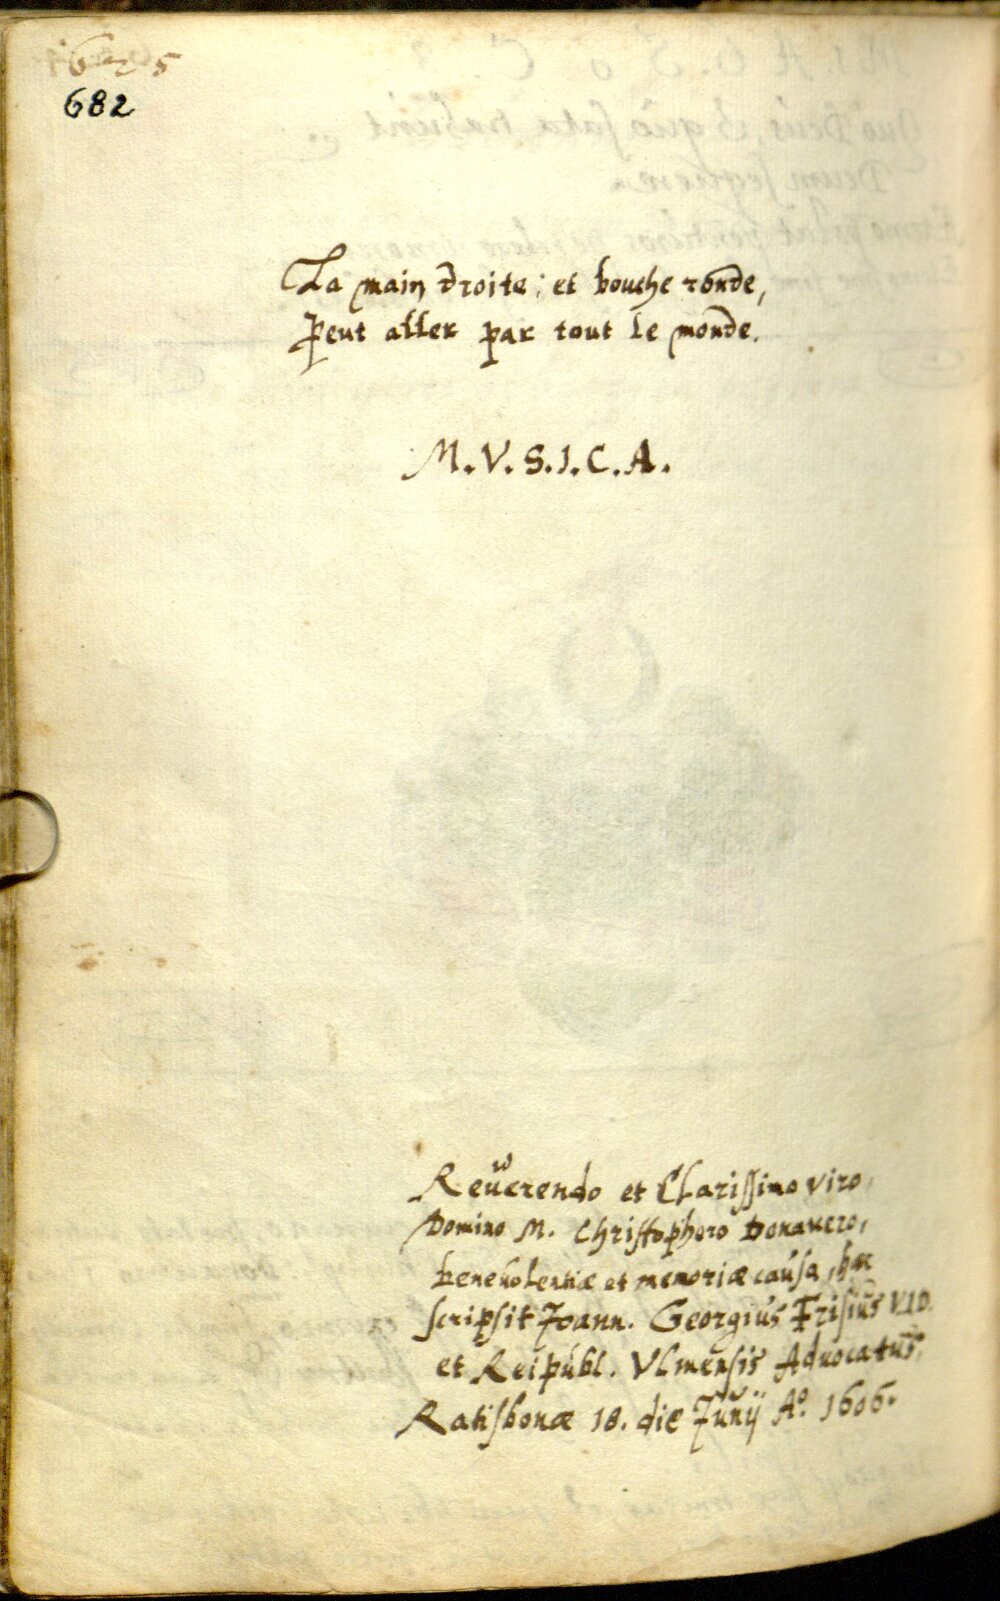 625
682
La main droite; et bouche ronde,
Peut aller par tout le monde.
M. V. S. I. C. A.
Reuerendo et Clarissimo viro
Domino M. Christophoro Donauero,
beneuolentiæ et memoriæ causa, hæc
scripsit Joann. Georgius Frisius V.I.D.
et Reipubl. Vlmensis Aduocatus.
Ratisbonæ 18. die Junij Aº. 1606.